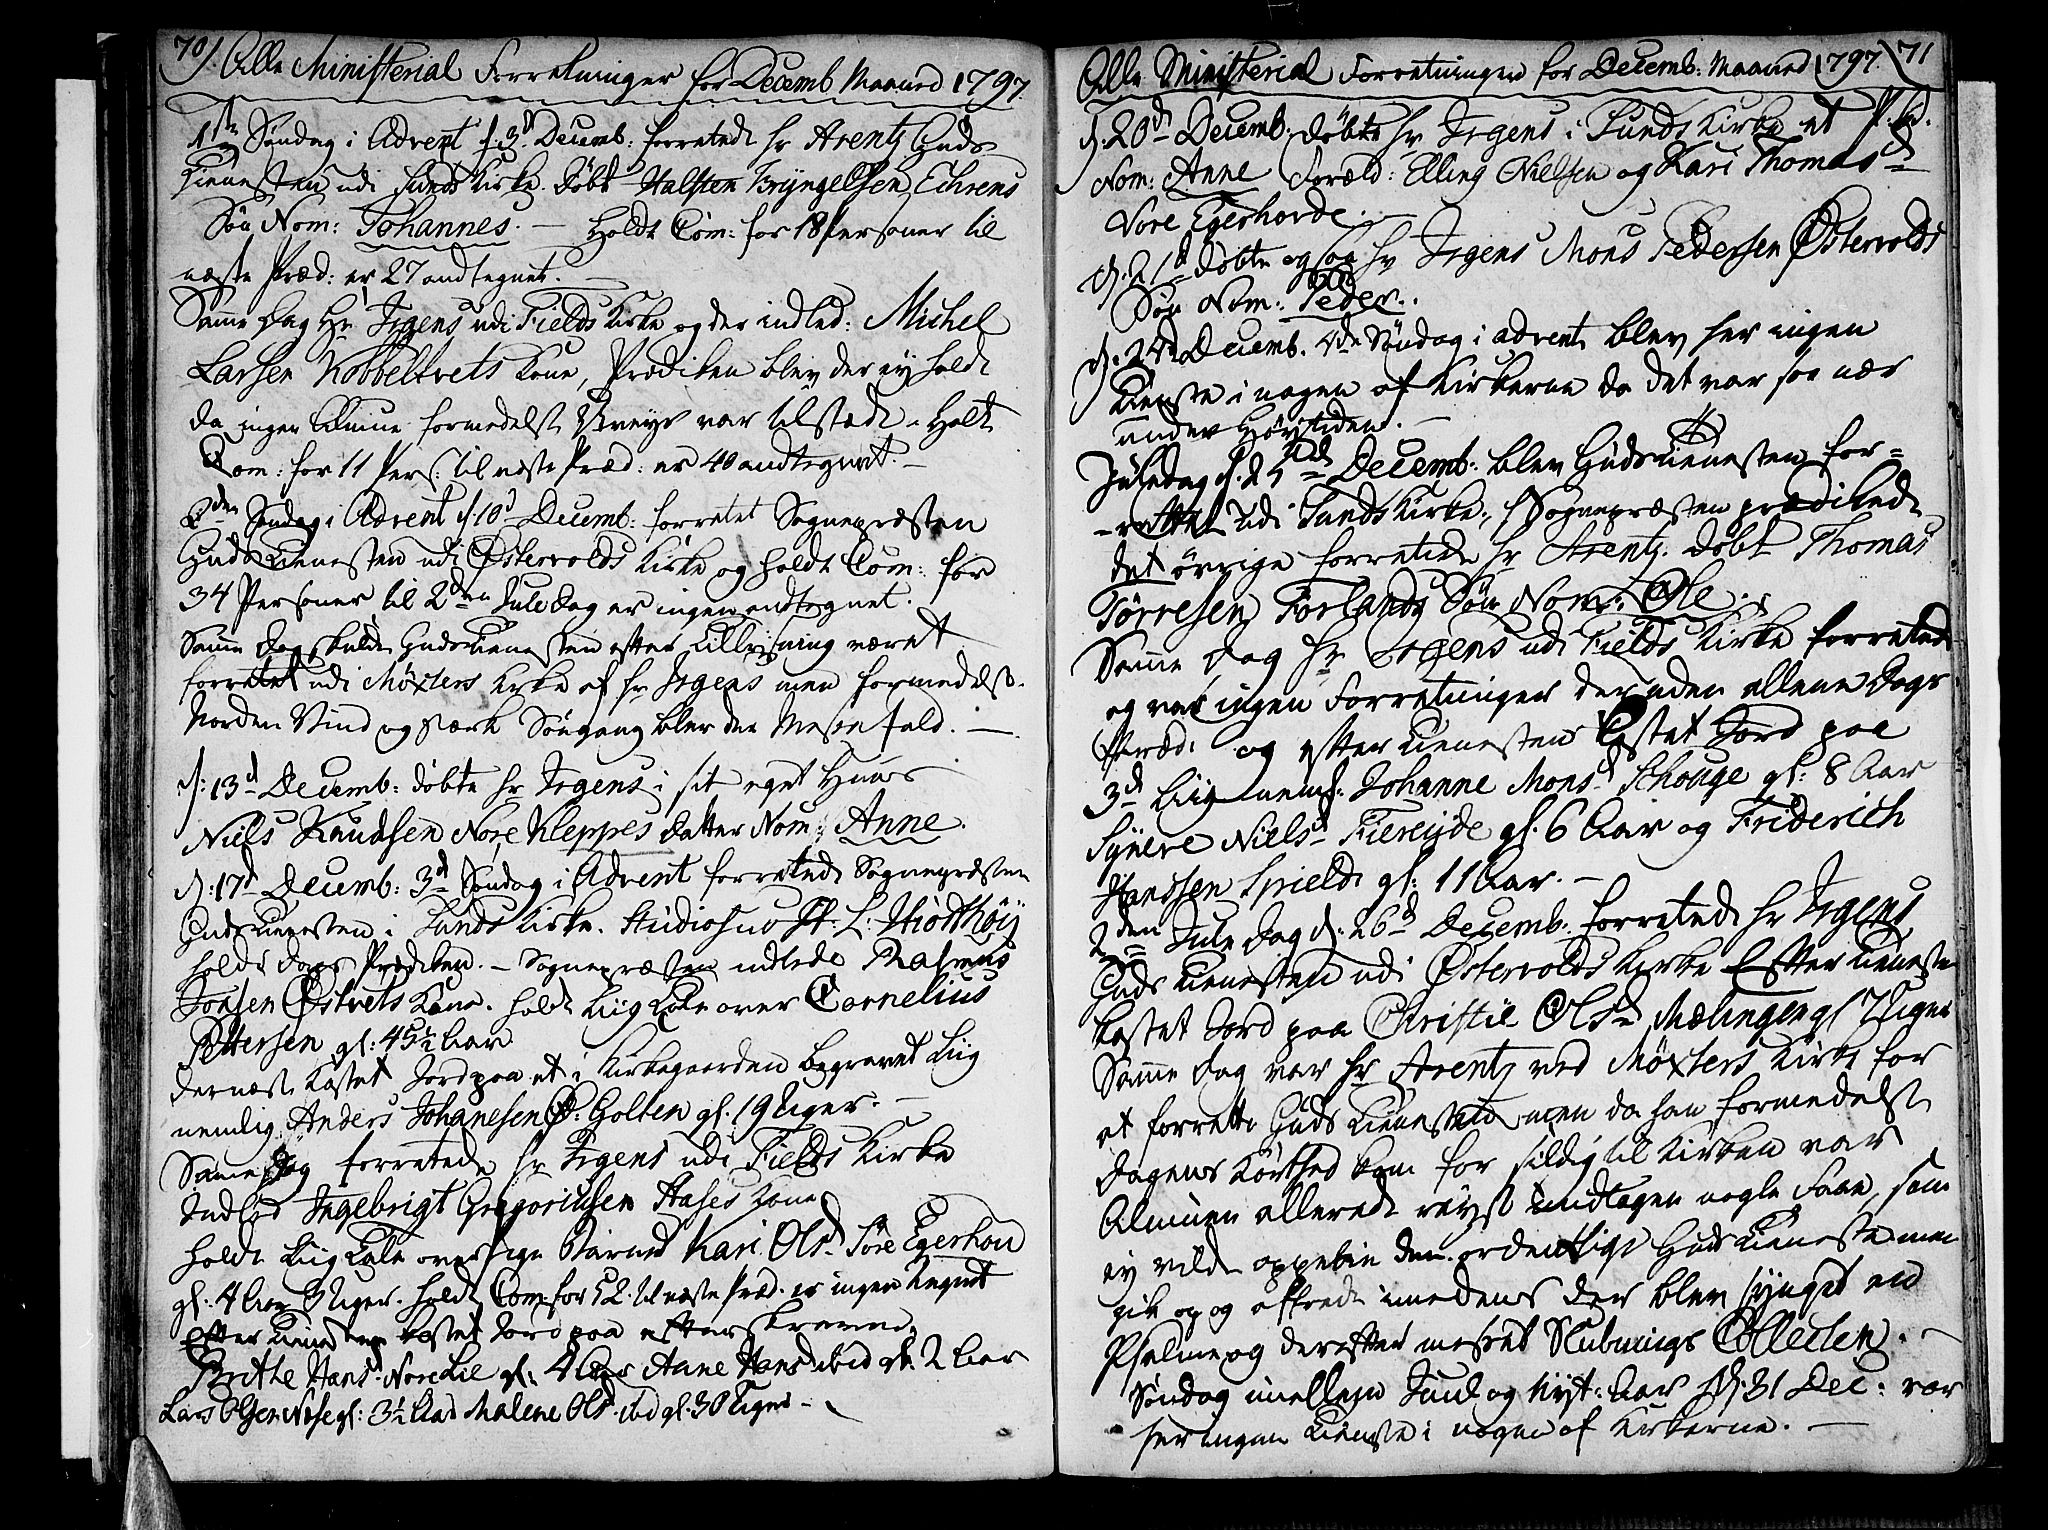 70). Alle Ministerial Forretninger for Decemb. Maaned 1797.
1ste Søndag i Advent d. 3d Decemb: forrettede hr Arentz Guds
tienesten udi Sunds Kirke. døbt Halsten Bryngelsen Echrens
Søn Nom: Johannes. — Holdt Com: for 18 Personer til
næste Præd: er 27 andtegnet. —
Samme Dag Hr Irgens udi Fields Kirke og der indled: Michel
Larsen Kobbeltvets Kone, Prædiken blev der ey holdt
da ingen Almue formedelst Uveyr var tilstæde. Holt
Com: for 11 Pers: til næste Præd: er 40 andtegnet. —
2den Søndag i Advent d. 10d Decemb: forrettet Sognepræsten
Gudstienesten udi Østervolds Kirke og holdt Com: for
34 Personer til 2den Juledag er ingen andtegnet.
Samme Dag skulde Gudstienesten efter Tillysning været
forrettet udi Møxters Kirke af hr Irgens men formedelst
Norden Vind og stærk Søegang blev der Messefald. —
d: 13d Decemb: døbte hr Irgens i sit eget Huus
Niels Knudsen Nore Kleppes datter Nom: Anne.
d: 17d Decemb: 3d Søndag i Advent forrettede Sognepræsten
Gudstienesten i Sunds Kirke. Studiosus H: L: Hiorthøÿ
holdt dags Prædiken. — Sognepræsten indlede Rasmus
Jonsen Østvets Kone. holdt Liig Tale over Cornelius
Pettersen gl: 45½ Aar
dernæst kastet Jord paa et i Kirkegaarden begravet Liig
nemlig Anders Johanesen Ø: Golten gl. 19 Uger. —
Same Dag forrettede hr Irgens udi Fields Kirke
Indled Ingebrigt Gregoriusen Hases Kone
holdt Liig Tale over Pige Barnet Kari Olsd Søre Egerhou
gl: 4 Aar 3 Uger. holdt Com for 52. til næste Præd. er ingen tegnet
Efter tienesten kastet Jord paa efterskrevne.
Brithe Hansd Nordlie gl: 4 Aar Anne Hansd ibid gl. 2 Aar
Lars Olsen Nese gl: 3½ Aar Malene Olsd ibid gl. 30 Uger —
Alle Ministerial Forretninger for Decemb: Maaned 1797. 71
d. 20d Decemb. døbte hr Irgens i Sunds Kirke et P. bd.
Nom: Anne Foræld: Elling Nielsen og Kari Thomasd
Nore Egerhorde. —
d. 21d døbte og saa hr Irgens Mons Pedersen Østervolds
Søn Nom: Peder.
d. 24d Decemb. 4de Søndag i advent blev her ingen
tieneste i nogen af Kirkerne da det var saa nær
under Høytiden. —
Juledag d. 25d Decemb: blev Gudstienesten for=
-rettet udi Sunds Kirke, Sognepræsten prædikede
det øvrige forrettede hr Arentz. døbt Thomas
Tørresen Førlands Søn Nom: Ole.
Samme Dag hr Irgens udi Fields Kirke forrettede
og var ingen Forretninger der uden allene Dags
Præd: og efter tienesten Castet Jord paa
3d Liig neml: Johanne Monsd Schouge gl: 8 Aar
Synere Nielsd Fiereÿde gl. 6 Aar og Friderich
Hanssen Spield gl: 11 Aar. —
2den Jule Dag d: 26d Decemb: forrettede hr Irgens
Guds tienesten udi Østervolds Kirke Efter tienesten
kastet Jord paa Christie Olsd Mælingen gl 7 Uger
Samme Dag var hr Arentz ved Møxters Kirke for
at forrette Guds tienesten men da han formedelst
dagens Korthed kom for sildig til Kirken var
Almuen allerede reyst undtagen nogle faae, som
ey vilde oppebie den ordentlige Guds tieneste men
gik op og offrede imedens der blev siunget en
Psalme og derefter messet Slutnings Collecten. —
Søndag imellem Juul og Nyt: Aar d. 31 Dec: var
her ingen tieneste i nogen af Kirkerne. —